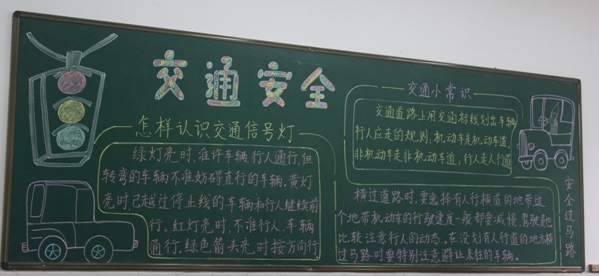 交通安全
怎样认识交通信号灯
绿灯亮时，准许车辆，行人通行，但
转弯的车辆不准妨碍直行的车辆，黄灯
亮时已越过停止线的车辆和行人继续前
行，红灯亮时，不准行人、车辆
通行，绿色箭头亮时按方向行
交通小常识
交通道路上用交通标线划出车辆
行人应走的规则，机动车走机动车道，
非机动车走非机动车道，行人走人行道
横过道路时，要选择有人行横道的地带这
个地带机动车的行驶速度一般都要减慢，驾驶员也
比较注意行人的动态，在没划有人行道的地方横
过马路时要特别注意避让来往的车辆。
安全过马路